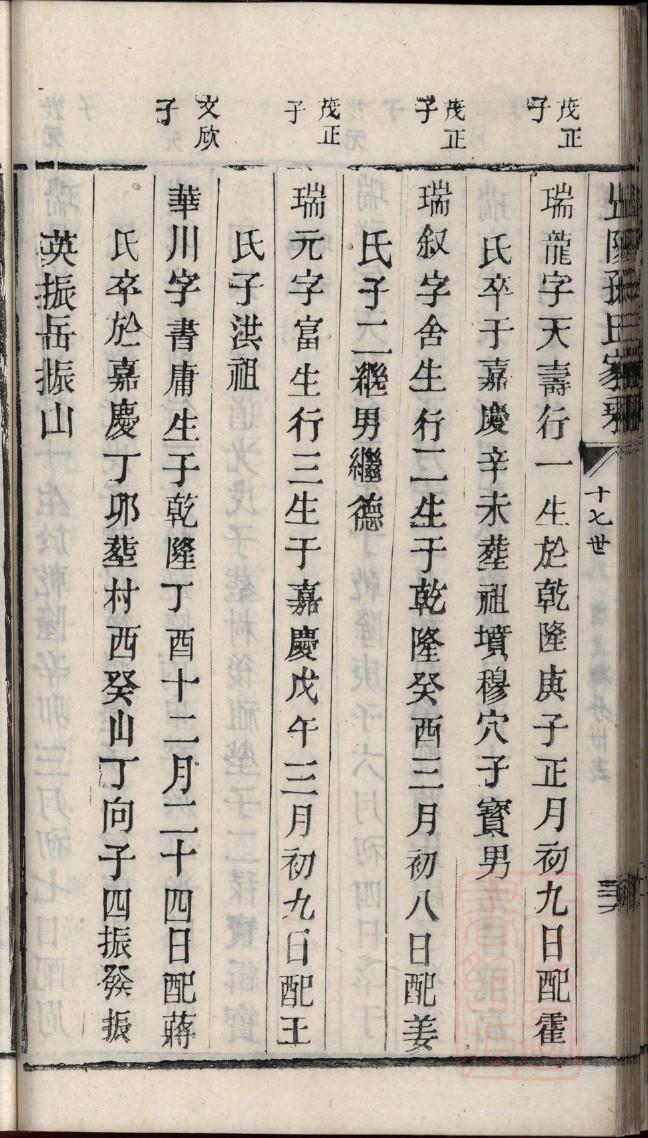 孫氏家乘
十七世
茂正
子
瑞龍字天壽行一生於乾隆庚子正月初九日配霍
氏卒于嘉慶辛未塟祖墳穆穴子寳男
茂正
子
瑞叙字舍生行二生于乾隆癸酉三月初八日配姜
氏子二継男繼德
茂正
子
瑞元字富生行三生于嘉慶戊午三月初九日配王
氏子洪祖
文欣
子
華川字書庸生于乾隆丁酉十二月二十四日配蔣
氏卒於嘉慶丁卯塟村西癸山丁向子四振發振
英振岳振山